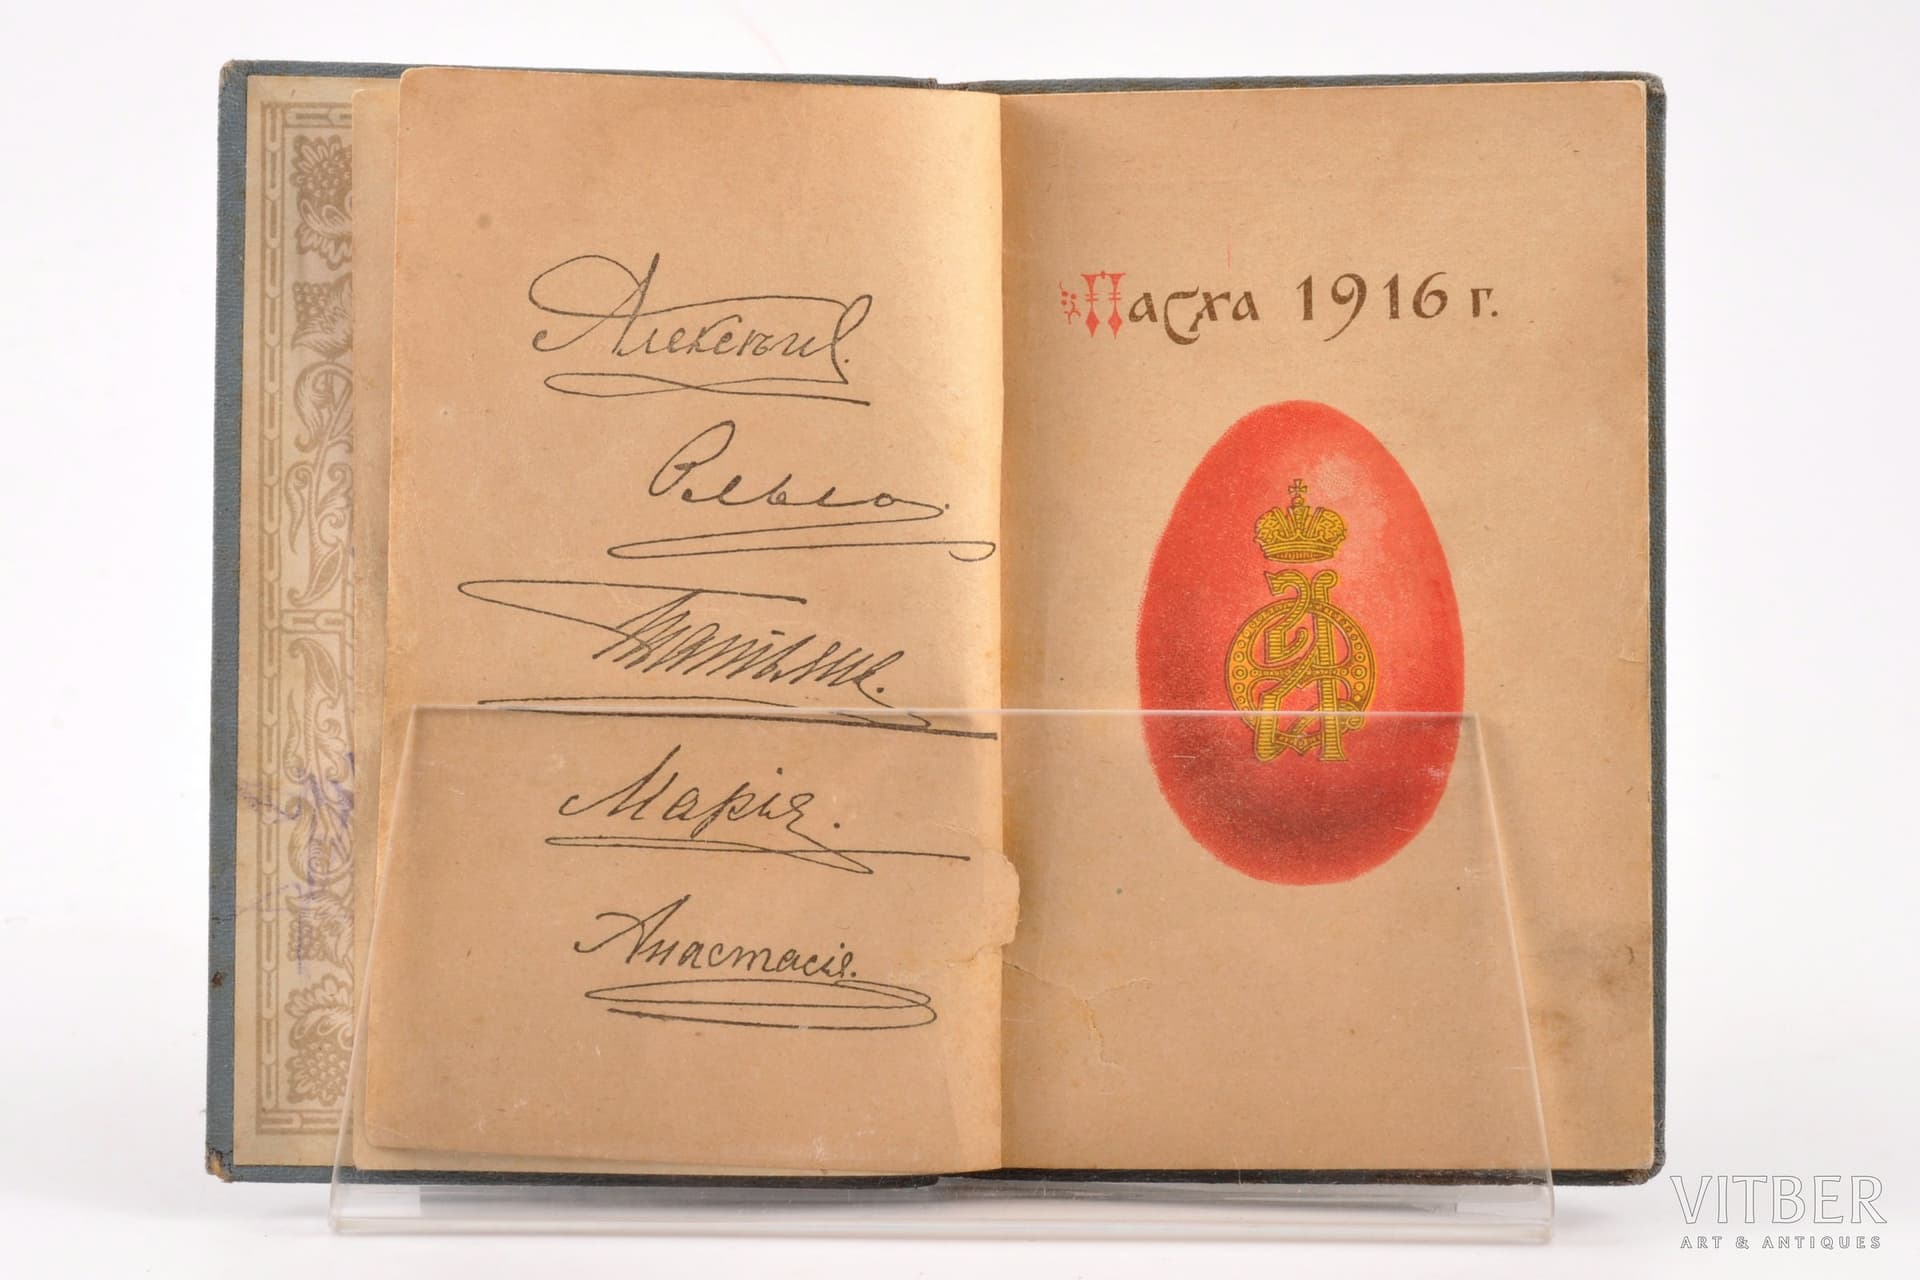 Алексѣй.
Ольга.
Татьяна.
Марія.
Анастасія.
Пасха 1916 г.
VITBER
ART & ANTIQUES